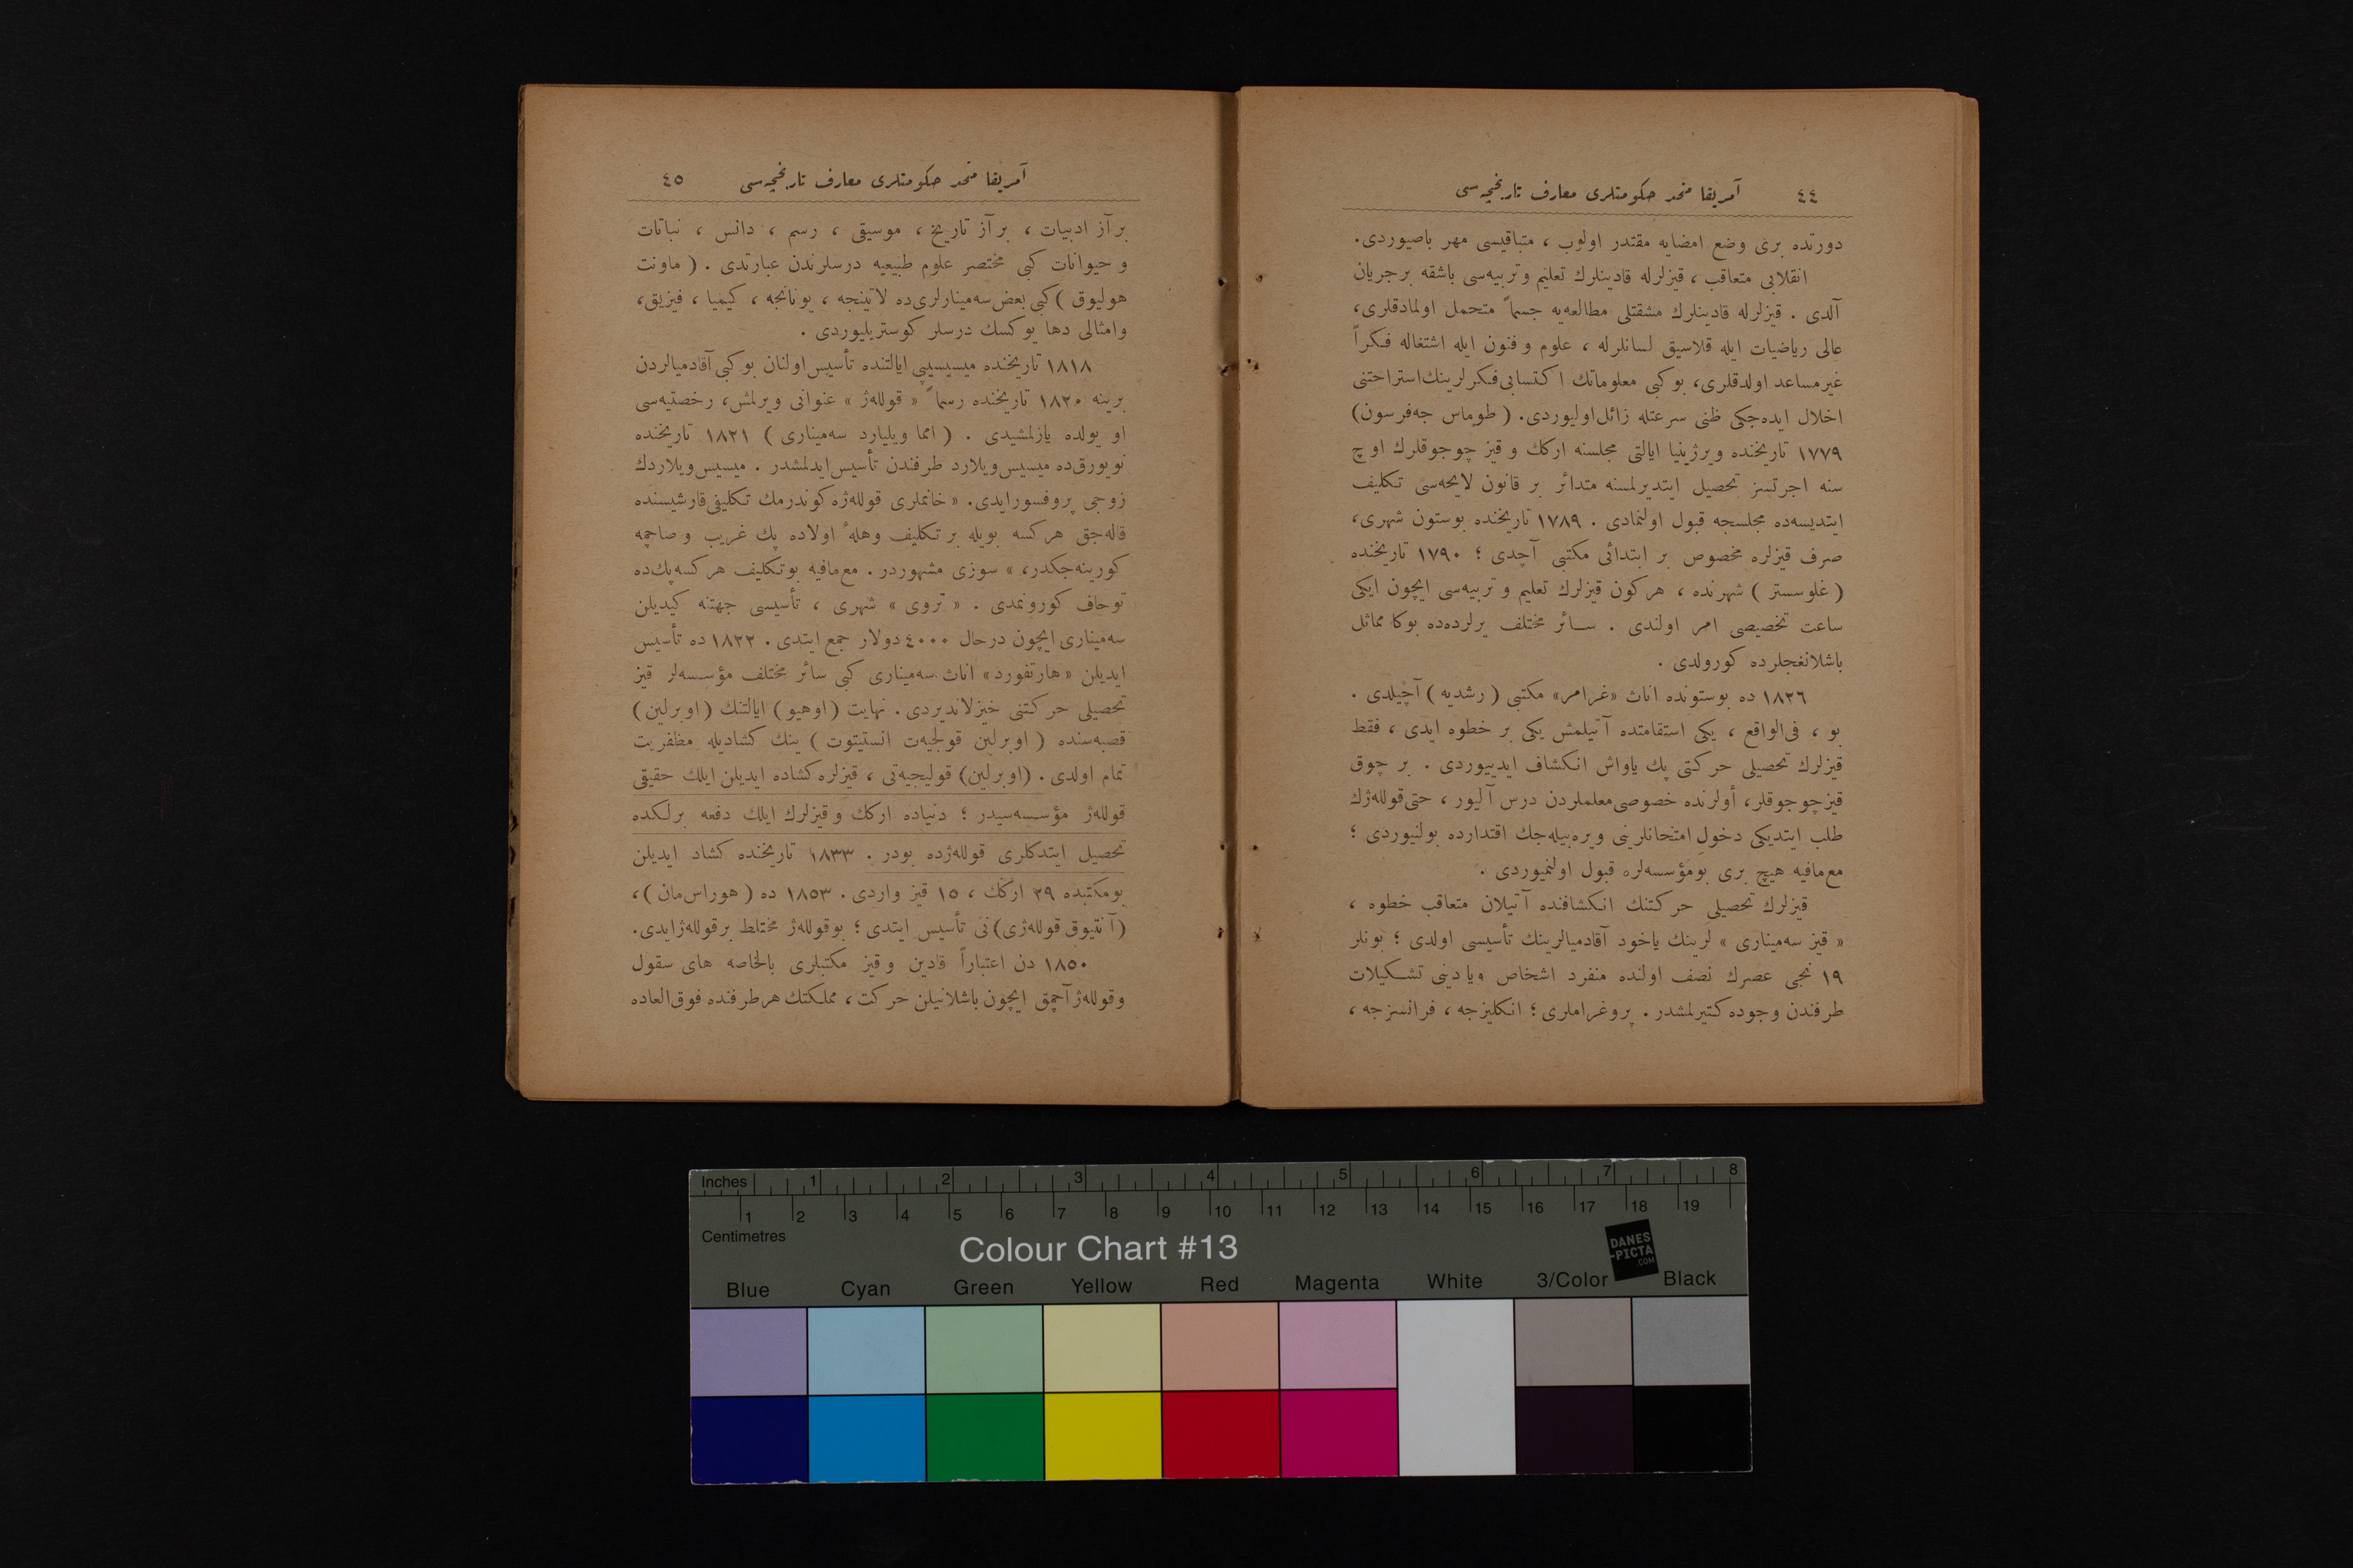 ٤٤ آمریقا متحد حکومتلری معارف تاریخچه‌سی
دورتده بری وضع امضایه مقتدر اولوب ، متباقیسی مهر باصیوردی.
انقلابی متعاقب ، قیزلرله قادینلرك تعلیم و تربیه‌سی باشقه بر جریان
آلدی . قیزلرله قادینلرك مشقتلی مطالعه‌یه جسماً متحمل اولمادقلری،
عالی ریاضیات ایله قلاسیق لسانلرله ، علوم و فنون ایله اشتغاله فكراً
غیرمساعد اولدقلری، بو كبی معلوماتك اكتسابی فكرلرینك استراحتنی
اخلال ایده‌جكی ظنی سرعتله زائل اولیوردی. ( طوماس جه‌فرسون)
١٧٧٩ تاریخنده ویرژینیا ایالتی مجلسنه اركك و قیز چوجوقلرك اوچ
سنه اجرتسز تحصیل ایتدیرلمسنه متدائر بر قانون لایحه‌سی تكلیف
ایتدیسه‌ده مجلسجه قبول اولنمادی . ١٧٨٩ تاریخنده بوستون شهری،
صرف قیزلره مخصوص بر ابتدائی مكتبی آچدی ؛ ١٧٩٠ تاریخنده
( غلوسستر ) شهرنده ، هركون قیزلرك تعلیم و تربیه‌سی ایچون ایكی
ساعت تخصیصی امر اولندی . سائر مختلف یرلرده‌ده بوكا مماثل
باشلانغجلرده كورولدی .
١٨٢٦ ده بوستونده اناث «غرامر» مكتبی ( رشدیه ) آچیلدی .
بو ، فی‌الواقع ، یكی استقامتده آتیلمش یكی بر خطوه ایدی ، فقط
قیزلرك تحصیلی حركتی پك یاواش انكشاف ایدییوردی . بر چوق
قیزچوجوقلر، أولرنده خصوصی معلملردن درس آلیور ، حتی قولله‌ژك
طلب ایتدیكی دخول امتحانلرینی ویره‌بیله‌جك اقتدارده بولنیوردی ؛
مع‌مافیه هیچ بری بومؤسسه‌لره قبول اولنمیوردی .
قیزلرك تحصیلی حركتنك انكشافنده آتیلان متعاقب خطوه ،
« قیز سه‌میناری » لرینك یاخود آقادمیالرینك تأسیسی اولدی ؛ بونلر
١٩ نجی عصرك نصف اولنده منفرد اشخاص ویا دینی تشكیلات
طرفندن وجوده كتیرلمشدر . پروغراملری ؛ انكلیزجه ، فرانسزجه ،
آمریقا متحد حکومتلری معارف تاریخچه‌سی ٤٥
بر آز ادبیات ، بر آز تاریخ ، موسیقی ، رسم ، دانس ، نباتات
و حیوانات كبی مختصر علوم طبیعیه درسلرندن عبارتدی . ( ماونت
هولیوق ) كبی بعض سه‌مینارلری‌ده لاتینجه ، یونانجه ، كیمیا ، فیزیق،
وامثالی دها یوكسك درسلر كوستریلیوردی .
١٨١٨ تاریخنده میسیسیپی ایالتنده تأسیس اولنان بو كبی آقادمیالردن
برینه ١٨٣٠ تاریخنده رسماً « قولله‌ژ » عنوانی ویرلمش، رخصتیه‌سی
او یولده یازلمشیدی . ( امما ویلیارد سه‌میناری ) ١٨٢١ تاریخنده
نویورق‌ده میسیس ویلارد طرفندن تأسیس ایدلمشدر . میسیس ویلاردك
زوجی پروفسورایدی. « خانملری قولله‌ژه كوندرمك تكلیفی قارشیسنده
قاله‌جق هر كسه بویله بر تكلیف وهلهٔ اولاده پك غریب و صاچمه
كورینه‌جكدر، » سوزی مشهوردر . مع‌مافیه بوتكلیف هركسه پك‌ده
توحاف كورونمدی . « تروی » شهری ، تأسیسی جهتنه كیدیلن
سه‌میناری ایچون درحال ٤٠٠٠ دولار جمع ایتدی . ١٨٢٢ ده تأسیس
ایدیلن « هارتفورد» اناث سه‌میناری كبی سائر مختلف مؤسسه‌لر قیز
تحصیلی حركتنی خیزلاندیردی . نهایت ( اوهیو ) ایالتنك ( اوبرلین )
قصبه‌سنده ( اوبرلین قولجیه‌ت انستیتوت ) ینك كشادیله مظفریت
تمام اولدی . (اوبرلین) قولیجیه‌تی ، قیزلره كشاده ایدیلن ایلك حقیقی
قولله‌ژ مؤسسه‌سیدر ؛ دنیاده اركك و قیزلرك ایلك دفعه برلكده
تحصیل ایتدكلری قولله‌ژده بودر . ١٨٣٣ تاریخنده كشاد ایدیلن
بومكتبده ٢٩ اركك ، ١٥ قیز واردی . ١٨٥٣ ده ( هوراس‌مان ) ،
( آنتیوق قولله‌ژی) نی تأسیس ایتدی ؛ بوقولله‌ژ مختلط برقولله‌ژایدی.
١٨٥٠ دن اعتباراً قادین و قیز مكتبلری بالخاصه های سقول
وقولله‌ژ آچمق ایچون باشلانیلن حركت ، مملكتك هرطرفنده فوق‌العاده
Inches 1 2 3 4 5 6 7 8
1 2 3 4 5 6 7 8 9 10 11 12 13 14 15 16 17 18 19
Centimetres
Colour Chart #13
DANES
-PICTA
.COM
Blue Cyan Green Yellow Red Magenta White 3/Color Black